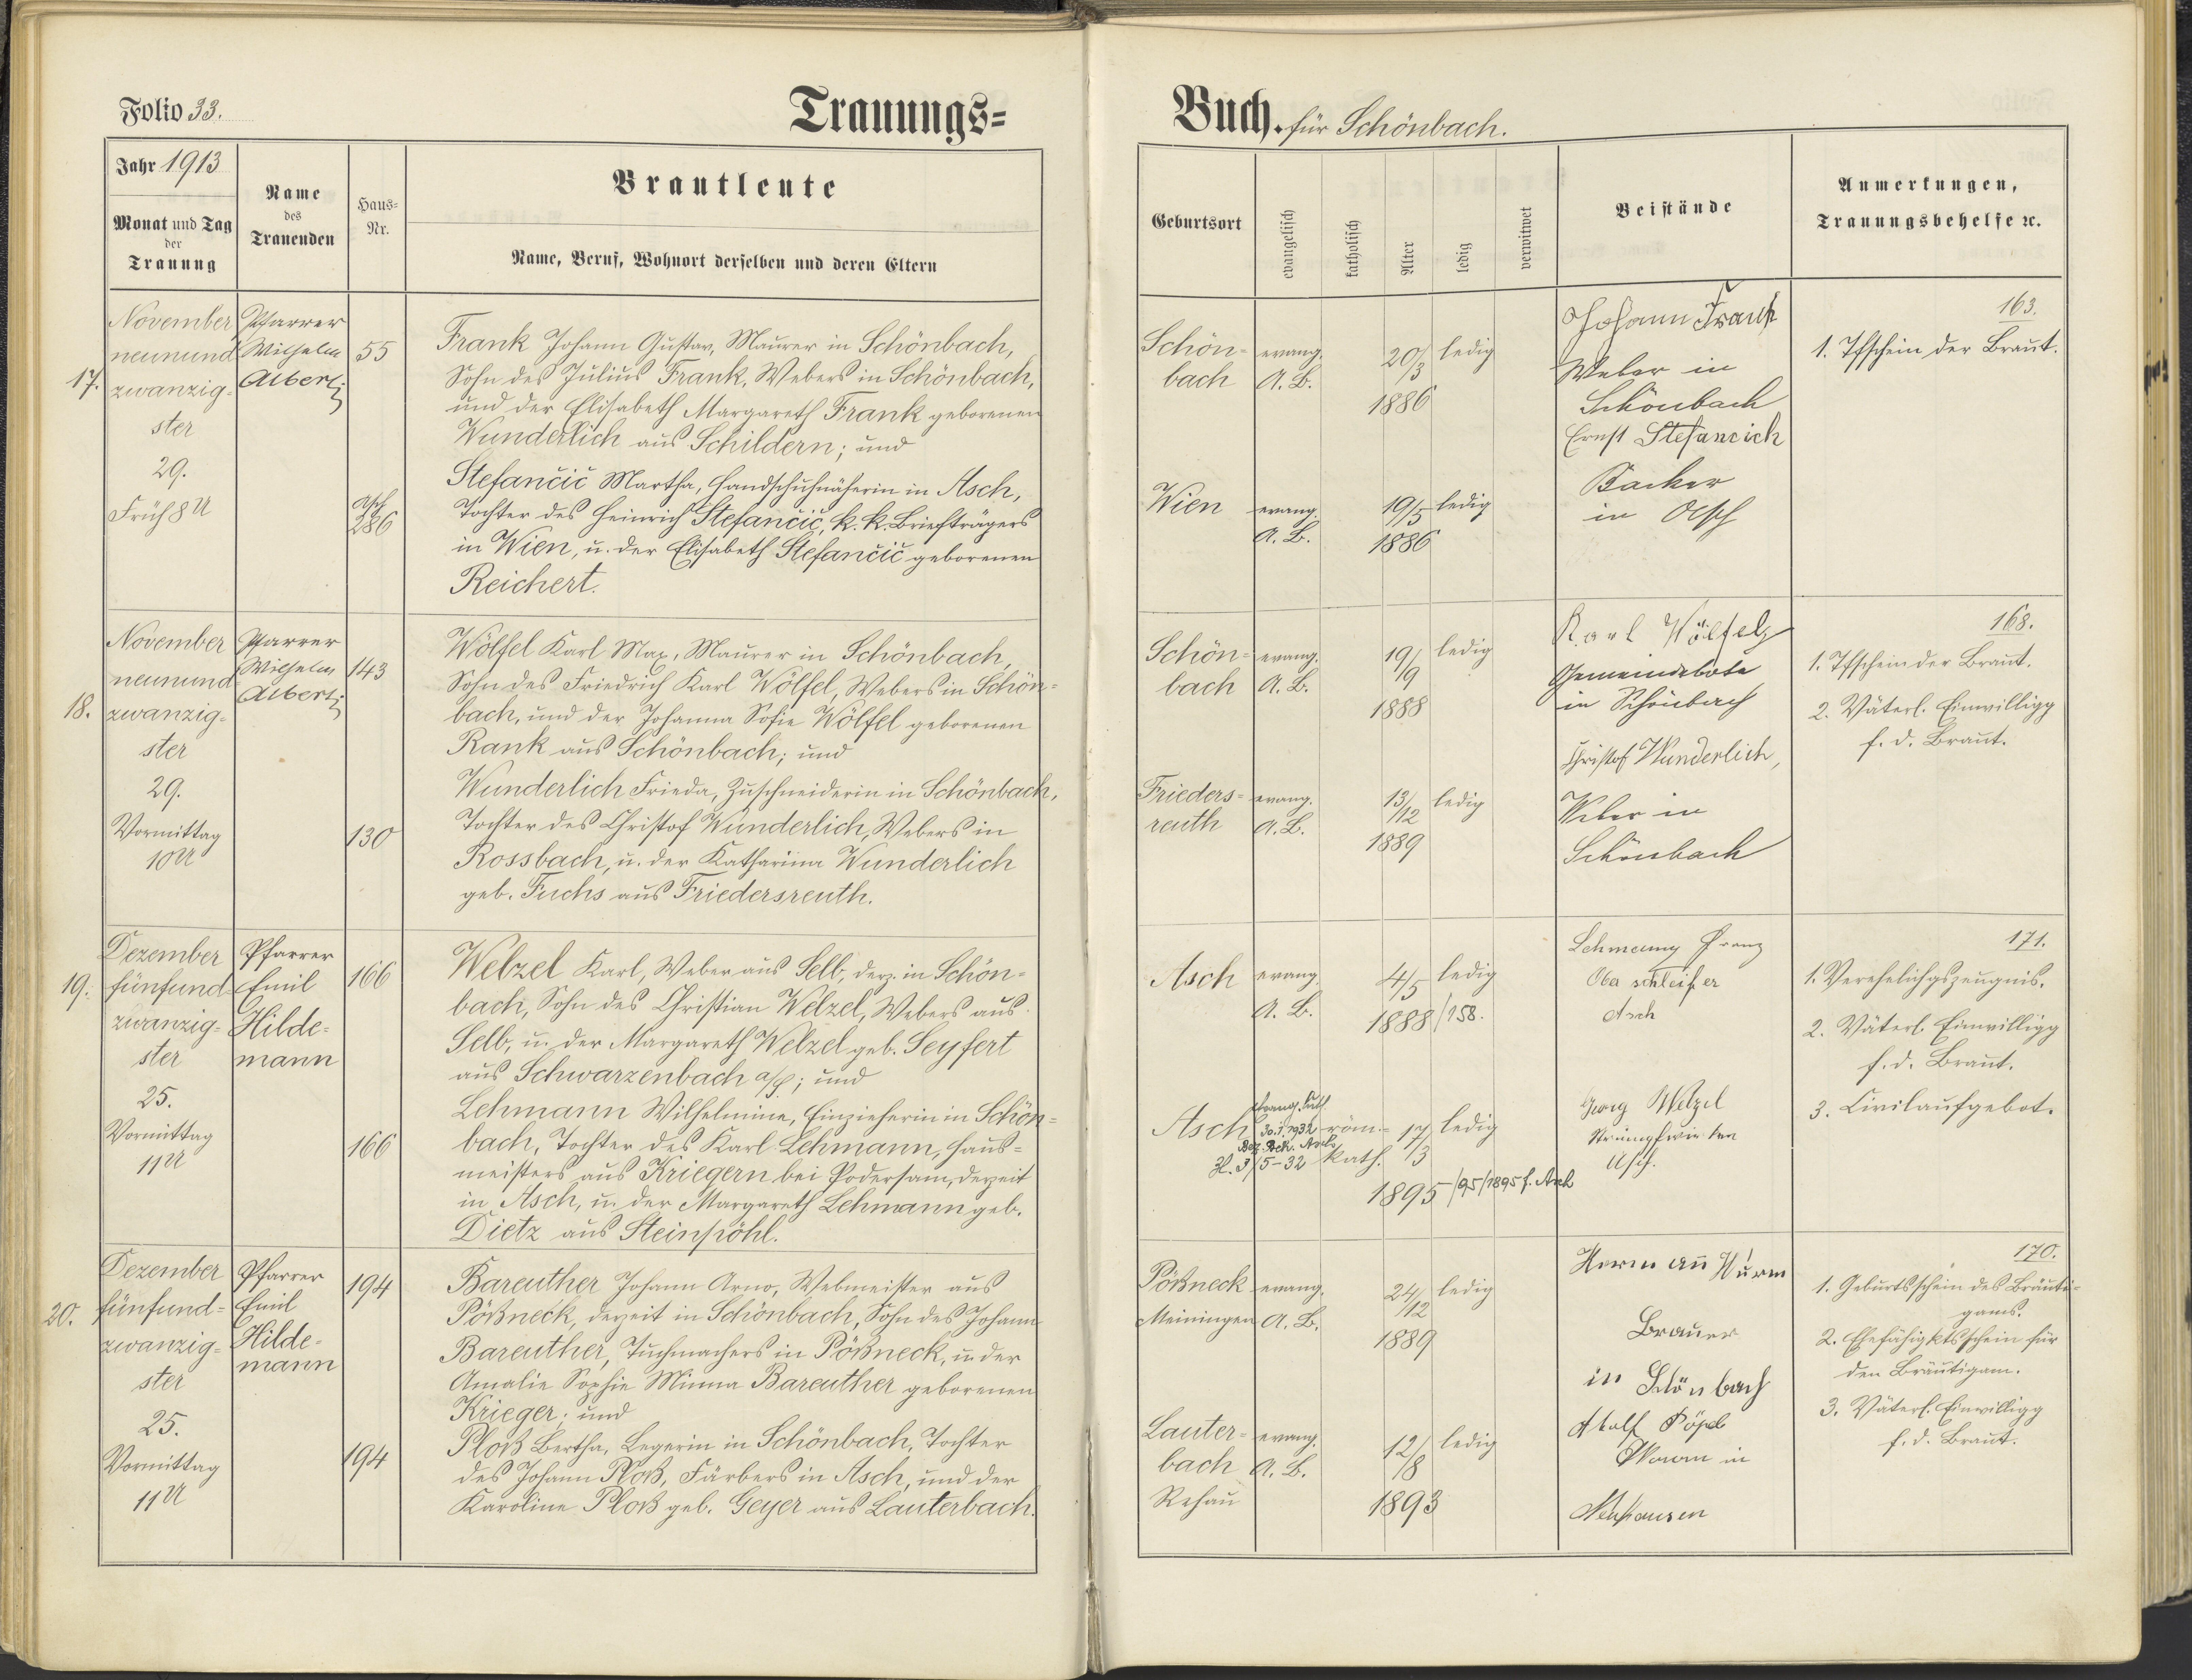 Folio 33.
Trauungs-
Jahr 1913
Monat und Tag
der
Trauung
Name
des
Trauenden
Haus-
Nr.
Brautleute
Name, Beruf, Wohnort derselben und deren Eltern
17.
November
neunund
zwanzig-
ster
29.
Früh 8 U
Pfarrer
Wilhelm
Alberti
55
Asch
286
Frank Johann Gustav, Maurer in Schönbach,
Sohn des Julius Frank, Webers in Schönbach,
und der Elisabeth Margareth Frank geborenen
Wunderlich aus Schildern; und
Stefančič Martha, Handschuhnäherin in Asch,
Tochter des Heinrich Stefančič, k. k. Briefträgers
in Wien, u. der Elisabeth Stefančič geborenen
Reichert.
18.
November
neunund
zwanzig-
ster
29.
Vormittag
10 U
Pfarrer
Wilhelm
Alberti
143
130
Wölfel Karl Max, Maurer in Schönbach,
Sohn des Friedrich Karl Wölfel, Webers in Schön-
bach, und der Johanna Sofie Wölfel geborenen
Rank aus Schönbach; und
Wunderlich Frieda, Zuschneiderin in Schönbach,
Tochter des Christof Wunderlich, Webers in
Rossbach, u. der Katharina Wunderlich
geb. Fuchs aus Friedersreuth.
19.
Dezember
fünfund
zwanzig-
ster
25.
Vormittag
11 U
Pfarrer
Emil
Hilde-
mann
166
166
Welzel Karl, Weber aus Selb, derz. in Schön-
bach, Sohn des Christian Welzel, Webers aus
Selb, u. der Margareth Welzel geb. Seyfert
aus Schwarzenbach a/S.; und
Lehmann Wilhelmine, Einzieherin in Schön-
bach, Tochter des Karl Lehmann, Haus-
meisters aus Kriegern bei Podersam, derzeit
in Asch, u. der Margareth Lehmann geb.
Dietz aus Steinpöhl.
20.
Dezember
fünfund-
zwanzig-
ster
25.
Vormittag
11 U
Pfarrer
Emil
Hilde-
mann
194
194
Bareuther Johann Arno, Webmeister aus
Pößneck, derzeit in Schönbach, Sohn des Johann
Bareuther, Tuchmachers in Pößneck, u. der
Amalie Sophie Minna Bareuther geborenen
Krieger; und
Ploß Bertha, Legerin in Schönbach, Tochter
des Johann Ploß, Färbers in Asch, und der
Karoline Ploß geb. Geyer aus Lauterbach.
Buch. für Schönbach.
Geburtsort
evangelisch
katholisch
Alter
ledig
verwitwet
Beistände
Anmerkungen,
Trauungsbehelfe ꝛc.
Schön-
bach
evang.
A. B.
20/3
1886
ledig
Wien
evang.
A. B.
19/5
1886
ledig
Johann Frank
Weber in
Schönbach
Ernst Stefancich
Backer
in Asch
163.
1. Tfschein der Braut.
Schön-
bach
evang.
A. B.
19/9
1888
ledig
Frieders-
reuth
evang.
A. B.
13/12
1889
ledig
Karl Wölfel
Gemeindebote
in Schönbach
Christof Wunderlich,
Weber in
Schönbach
168.
1. Tfschein der Braut.
2. Väterl. Einwilligg
f. d. Braut.
Asch
evang.
A. B.
4/5
1888/158.
ledig
Asch
evang. luth
30.5.1932
Bez. Beh. Asch
Zl. 3/5-32
röm.-
kath.
17/3
1895/95/1895 f. Asch
ledig
Lehmann Franz
Ober schleifer
Asch
Georg Welzel
Strumpfwirker
Asch.
171.
1. Verehelichgszeugnis.
2. Väterl. Einwilligg
f. d. Braut.
3. Civilaufgebot.
Pößneck
Meiningen
evang.
A. B.
24/12
1889
ledig
Lauter-
bach
Rehau
evang.
A. B.
12/8
1893
ledig
Hermann Wurm
Brauer
in Schönbach
Adolf
in
Neuhausen
170.
1. Geburtsschein des Bräuti-
gams.
2. Ehefähigktsschein für
den Bräutigam.
3. Väterl. Einwilligg
f. d. Braut.